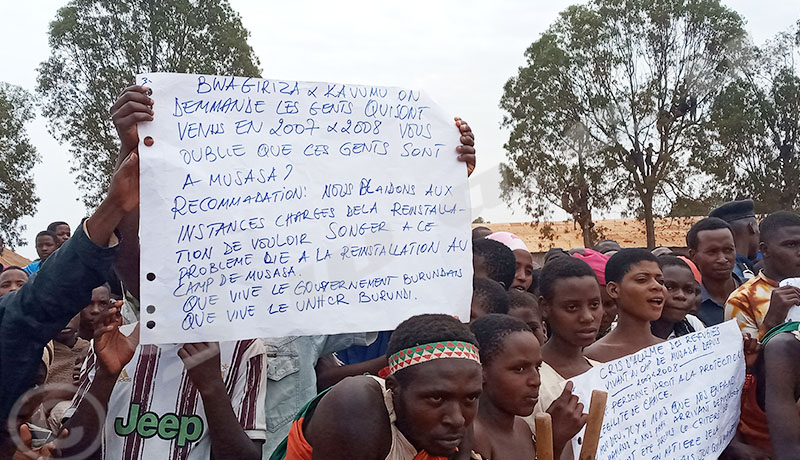 3.
BWAGIRIZA & KAVUMU ON
DEMMANDE LES GENTS QUI SONT
VENUS EN 2007 & 2008 VOUS
OUBLIE QUE CES GENTS SONT
A MUSASA?
RECOMMADATION: NOUS PLAIDONS AUX
INSTANCES CHARGES DE LA REINSTALLA-
TION DE VOULOIR SONGER A CE
PROBLEME DIE A LA REINSTALLATION AU
CAMP DE MUSASA.
QUE VIVE LE GOUVERNEMENT BURUNDAIS
QUE VIVE LE UNHCR BURUNDI.
Jeep
CRIS D'ALARME DES REFUGIES
VIVANT AU CAMP DE MUSASA DEPUIS
2007-2008
PERSONNE DROIT A LA PROTECTION